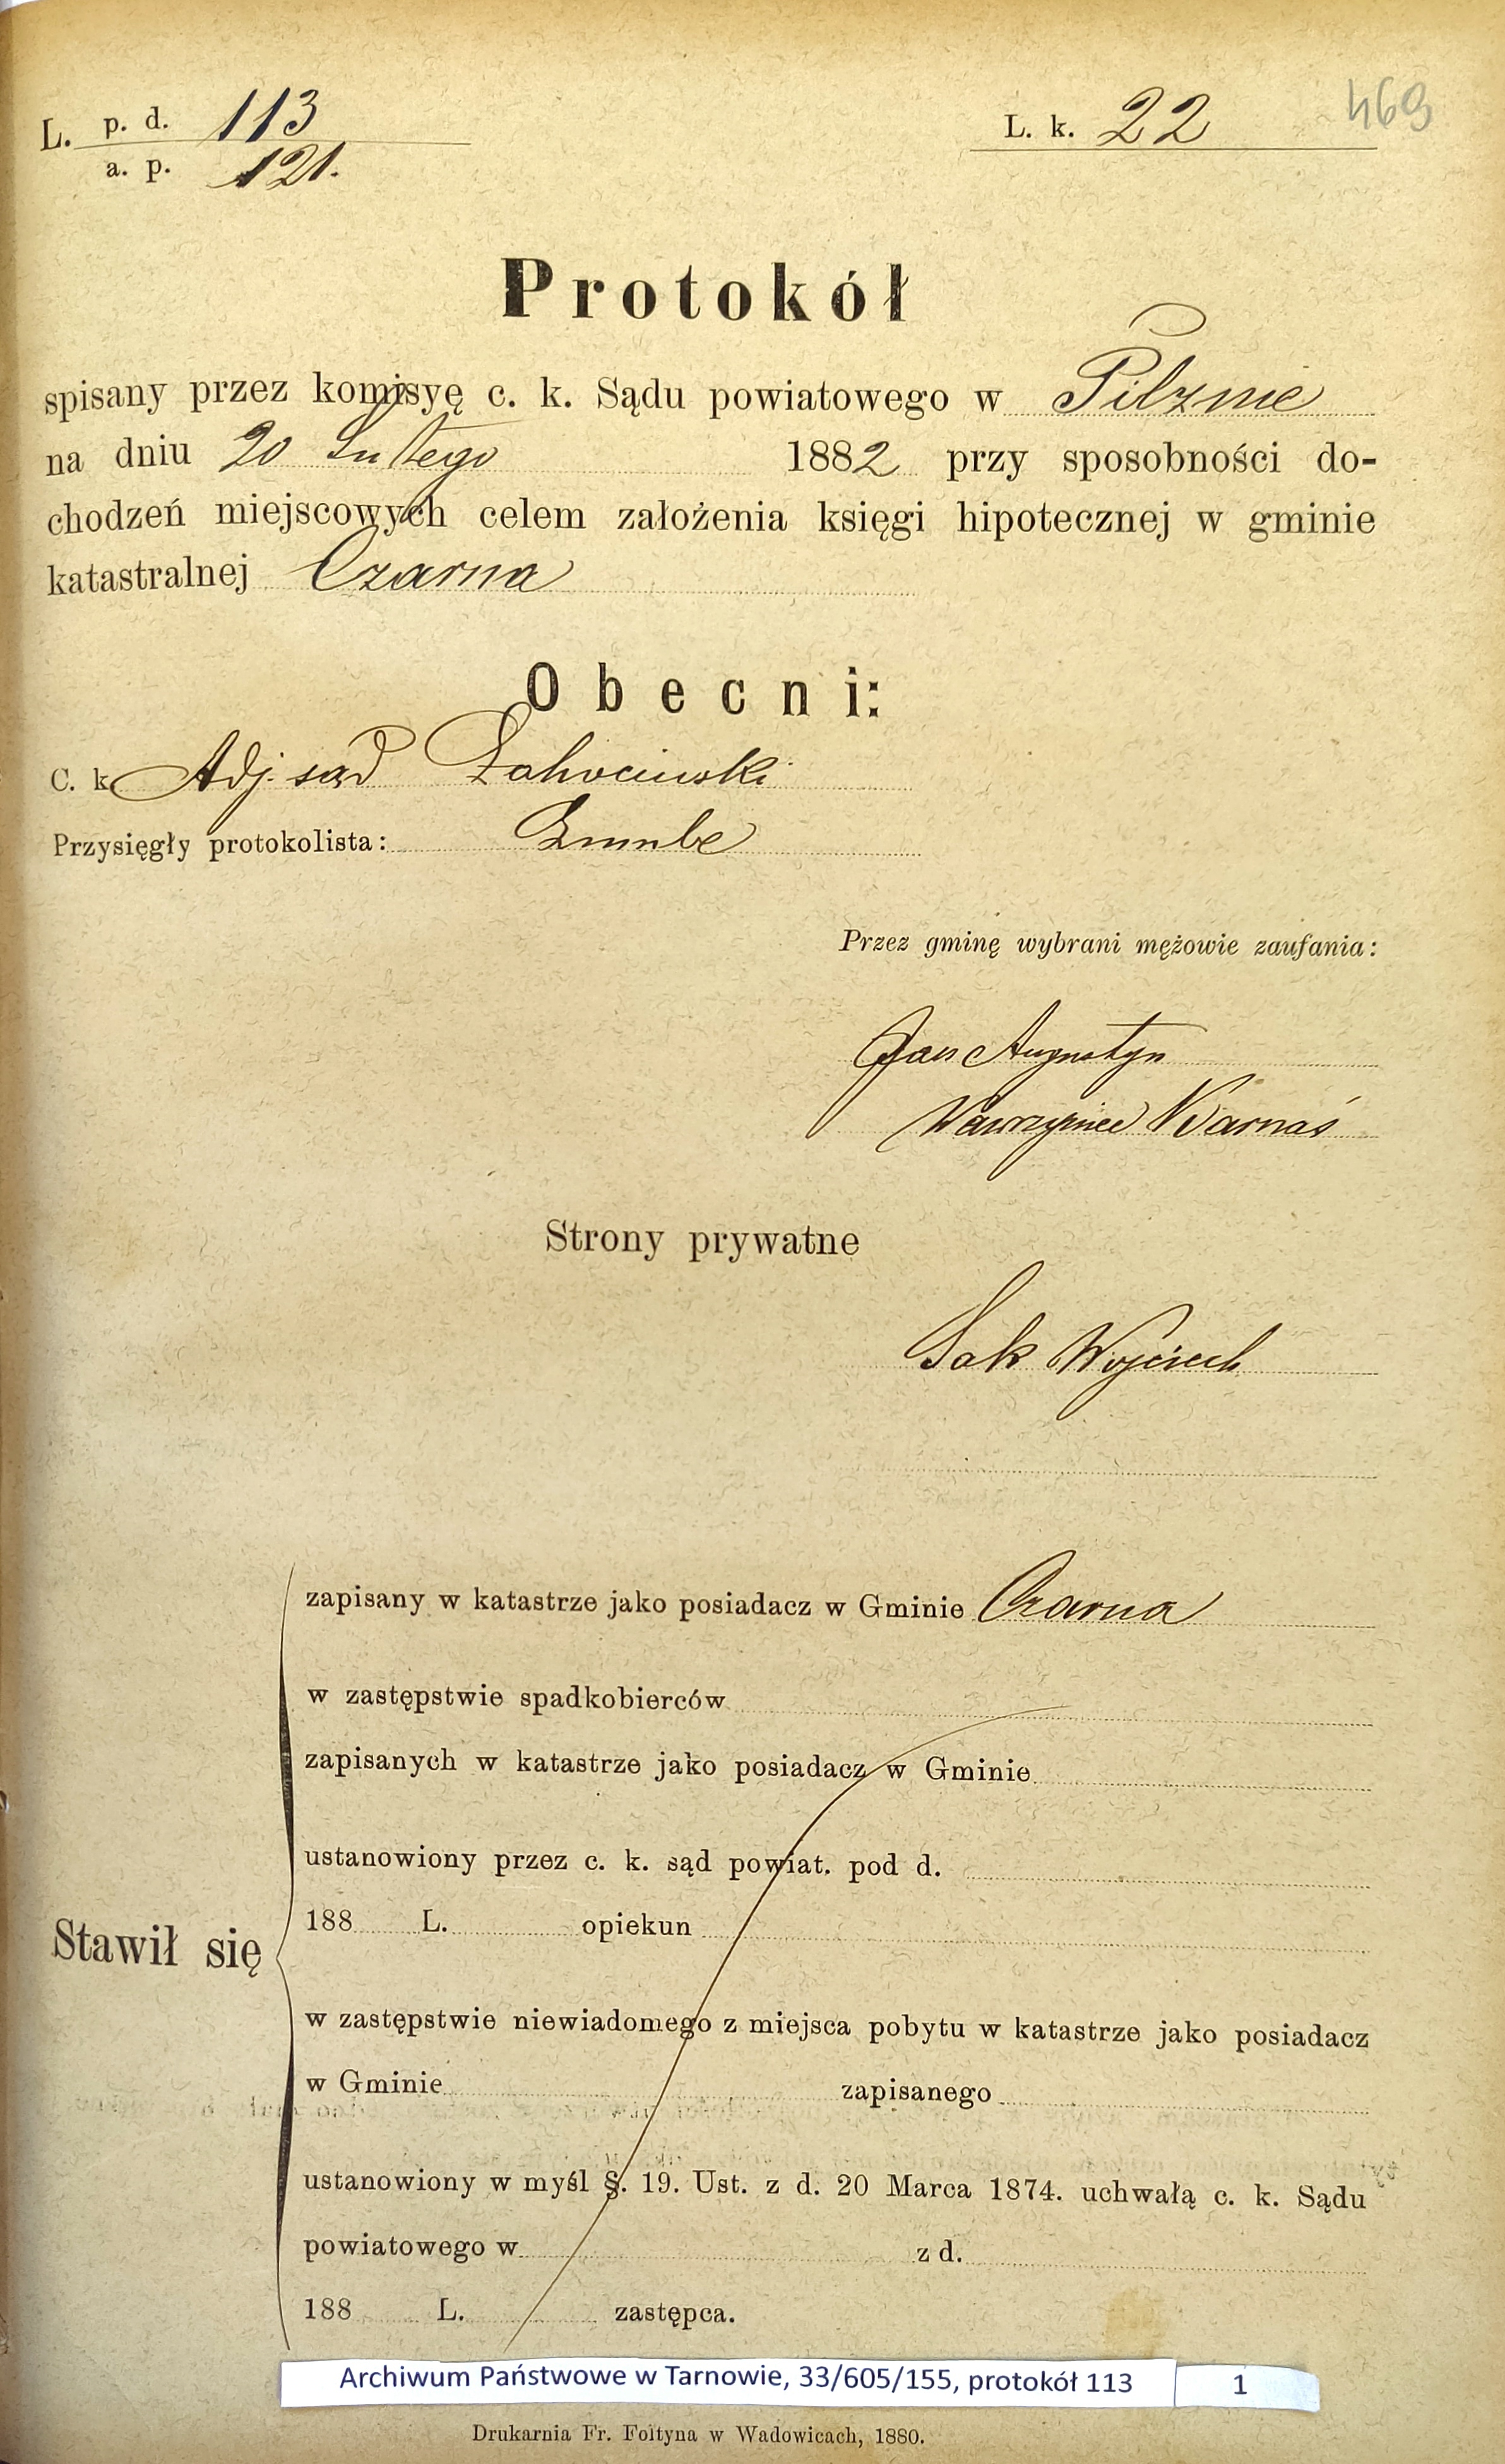 469
L. p. d. 113 L. k. 22
a. p. 121.
Protokół
spisany przez komisyę c. k. Sądu powiatowego w Pilznie
na dniu 20 Lutego 1882 przy sposobności do-
chodzeń miejscowych celem założenia księgi hipotecznej w gminie
katastralnej Czarna
Obecni:
C. k. Adj. sąd
Przysięgły protokolista:
Przez gminę wybrani mężowie zaufania:
Jan Augustyn
Wawrzyniec Barnaś
Strony prywatne
Wojciech
zapisany w katastrze jako posiadacz w Gminie Czarna
w zastępstwie spadkobierców
zapisanych w katastrze jako posiadacz w Gminie
ustanowiony przez c. k. sąd powiat. pod d.
188 L. opiekun
Stawił się
w zastępstwie niewiadomego z miejsca pobytu w katastrze jako posiadacz
w Gminie zapisanego
ustanowiony w myśl §. 19. Ust. z d. 20 Marca 1874. uchwałą c. k. Sądu
powiatowego w z d.
188 L. zastępca.
Archiwum Państwowe w Tarnowie, 33/605/155, protokół 113 1
Drukarnia Fr. Foltyna w Wadowicach, 1880.